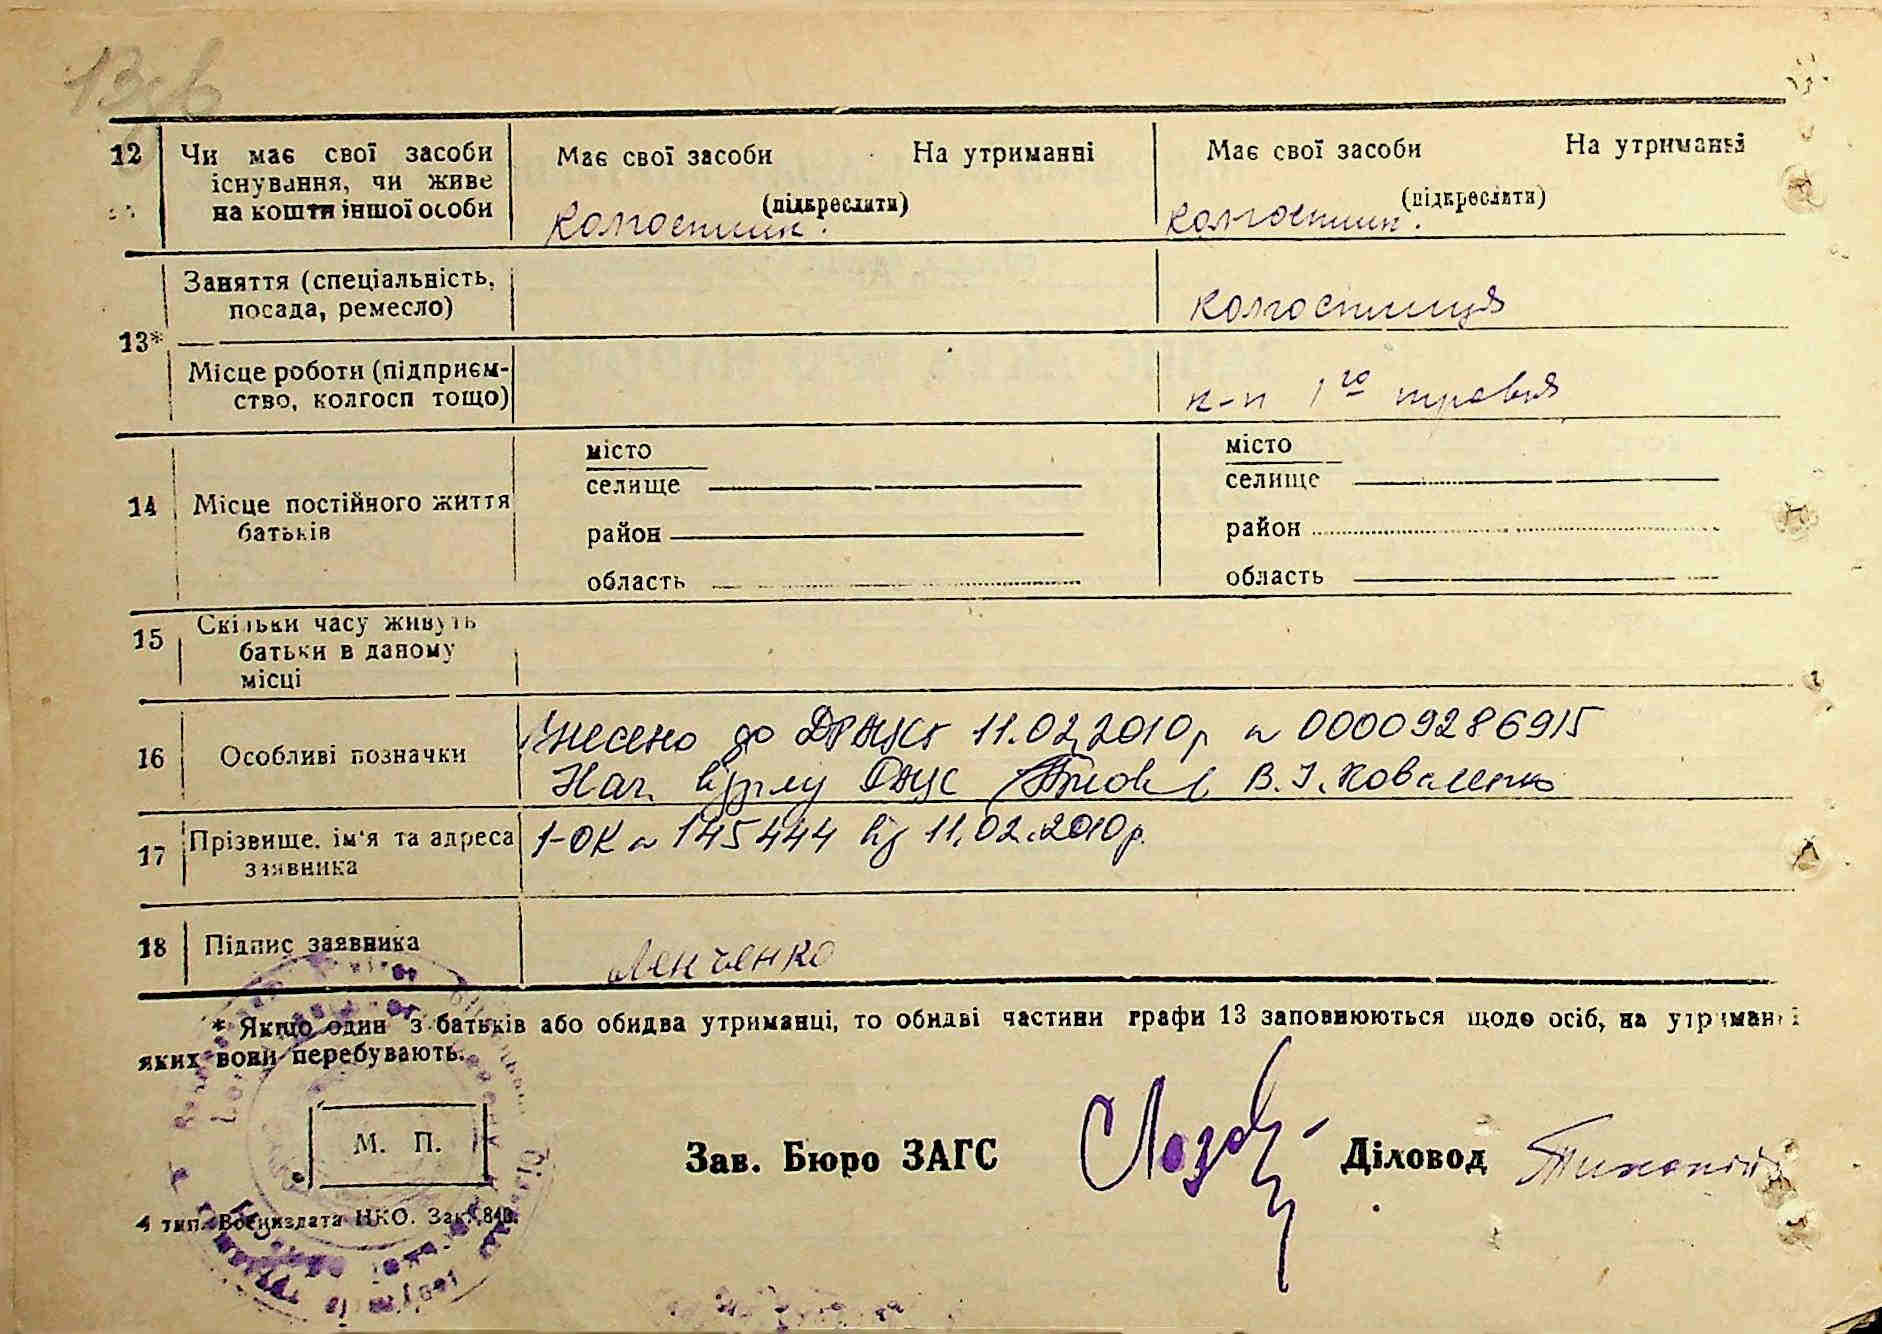 12 Чи має свої засоби існування, чи живе на кошти іншої особи
Має свої засоби На утриманні
(підкреслити)
колгоспник.
Має свої засоби На утриманні
(підкреслити)
колгоспник.
13*
Заняття (спеціальність, посада, ремесло)
колгоспниця
Місце роботи (підприємство, колгосп тощо)
к-п 1го травня
14 Місце постійного життя батьків
місто
селище
район
область
місто
селище
район
область
15 Скільки часу живуть батьки в даному місці
16 Особливі позначки
Внесено до ДРАЦСг 11.02.2010р № 00009286915
Нач. відділу ДРАЦС В.І. Коваленко
17 Прізвище, ім'я та адреса заявника
1-ОК № 145444 від 11.02.2010р.
18 Підпис заявника
Ленченко
* Якщо один з батьків або обидва утриманці, то обидві частини графи 13 заповнюються щодо осіб, на утриманні
яких вони перебувають.
М. П.
Зав. Бюро ЗАГС
Діловод
4 тип. Воениздата НКО. Зак. 840.